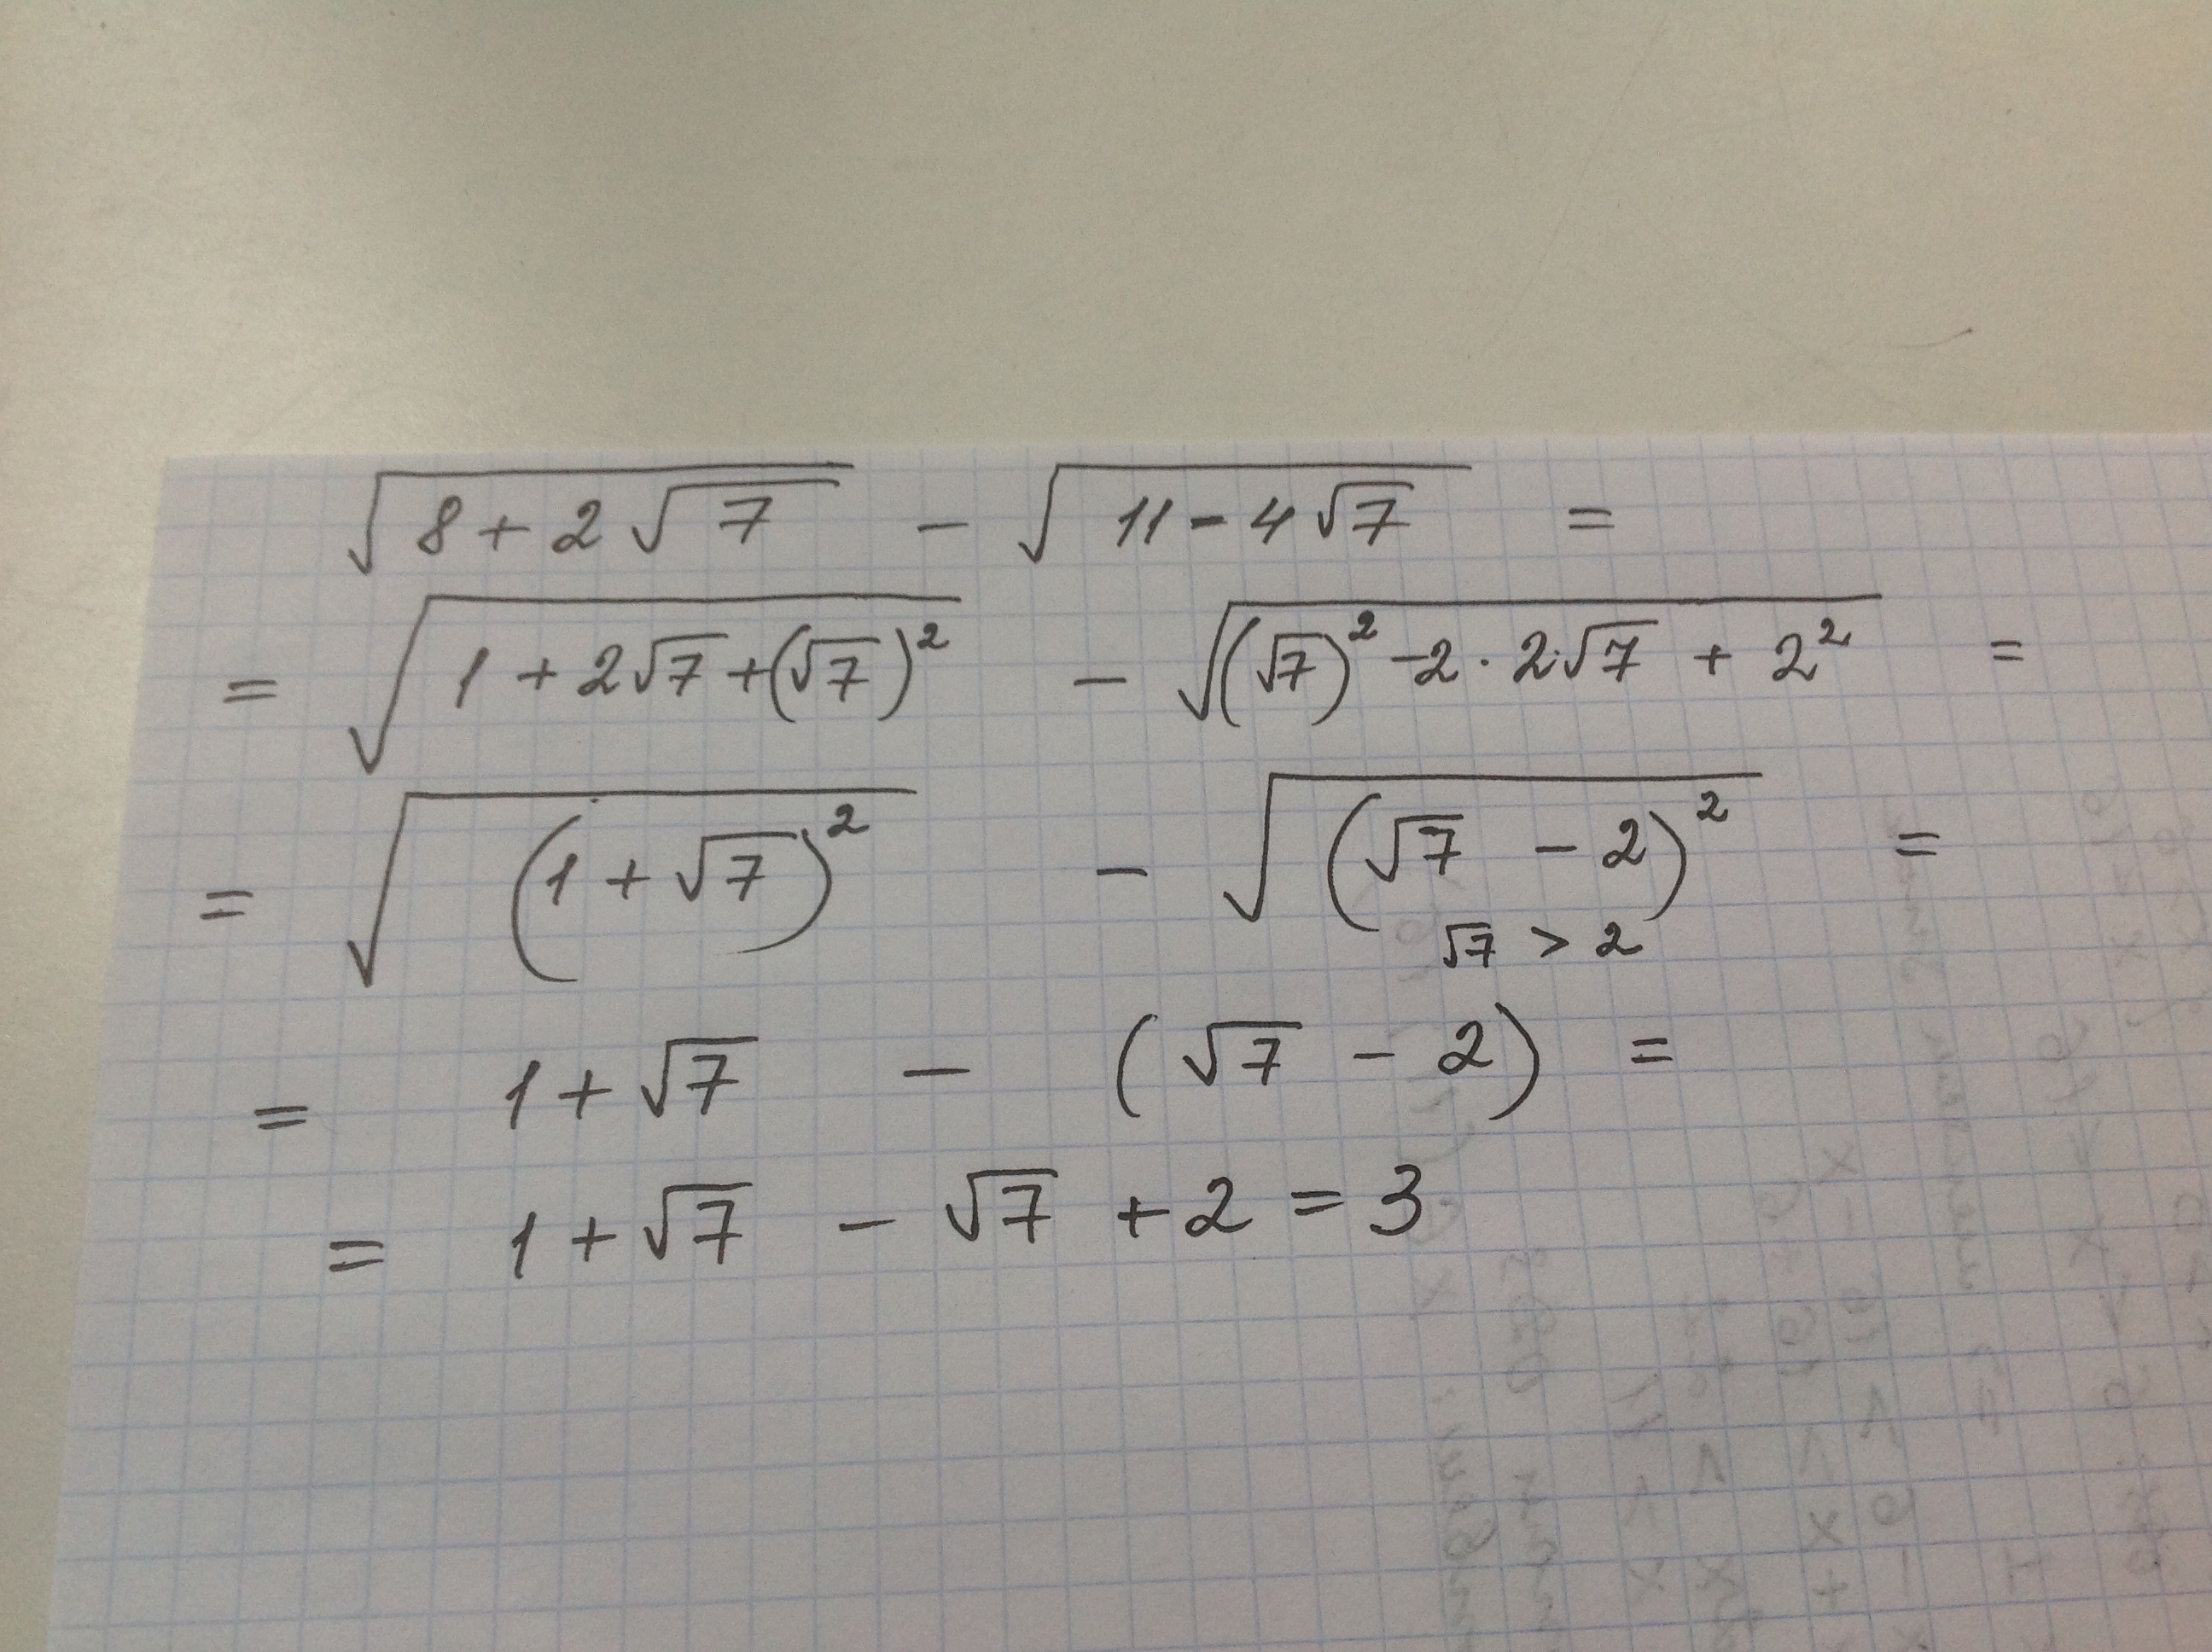 √(8 + 2√7) - √(11 - 4√7) =
= √(1 + 2√7 + (√7)²) - √((√7)² - 2 · 2·√7 + 2²) =
= √((1 + √7)²) - √((√7 - 2)²) =
√7 > 2
= 1 + √7 - (√7 - 2) =
= 1 + √7 - √7 + 2 = 3